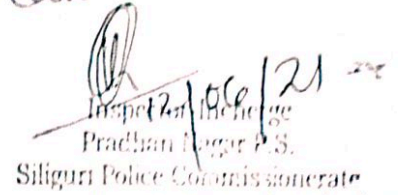 12/06/21
Inspector Incharge
Pradhan Nagar P.S.
Siliguri Police Commissionerate